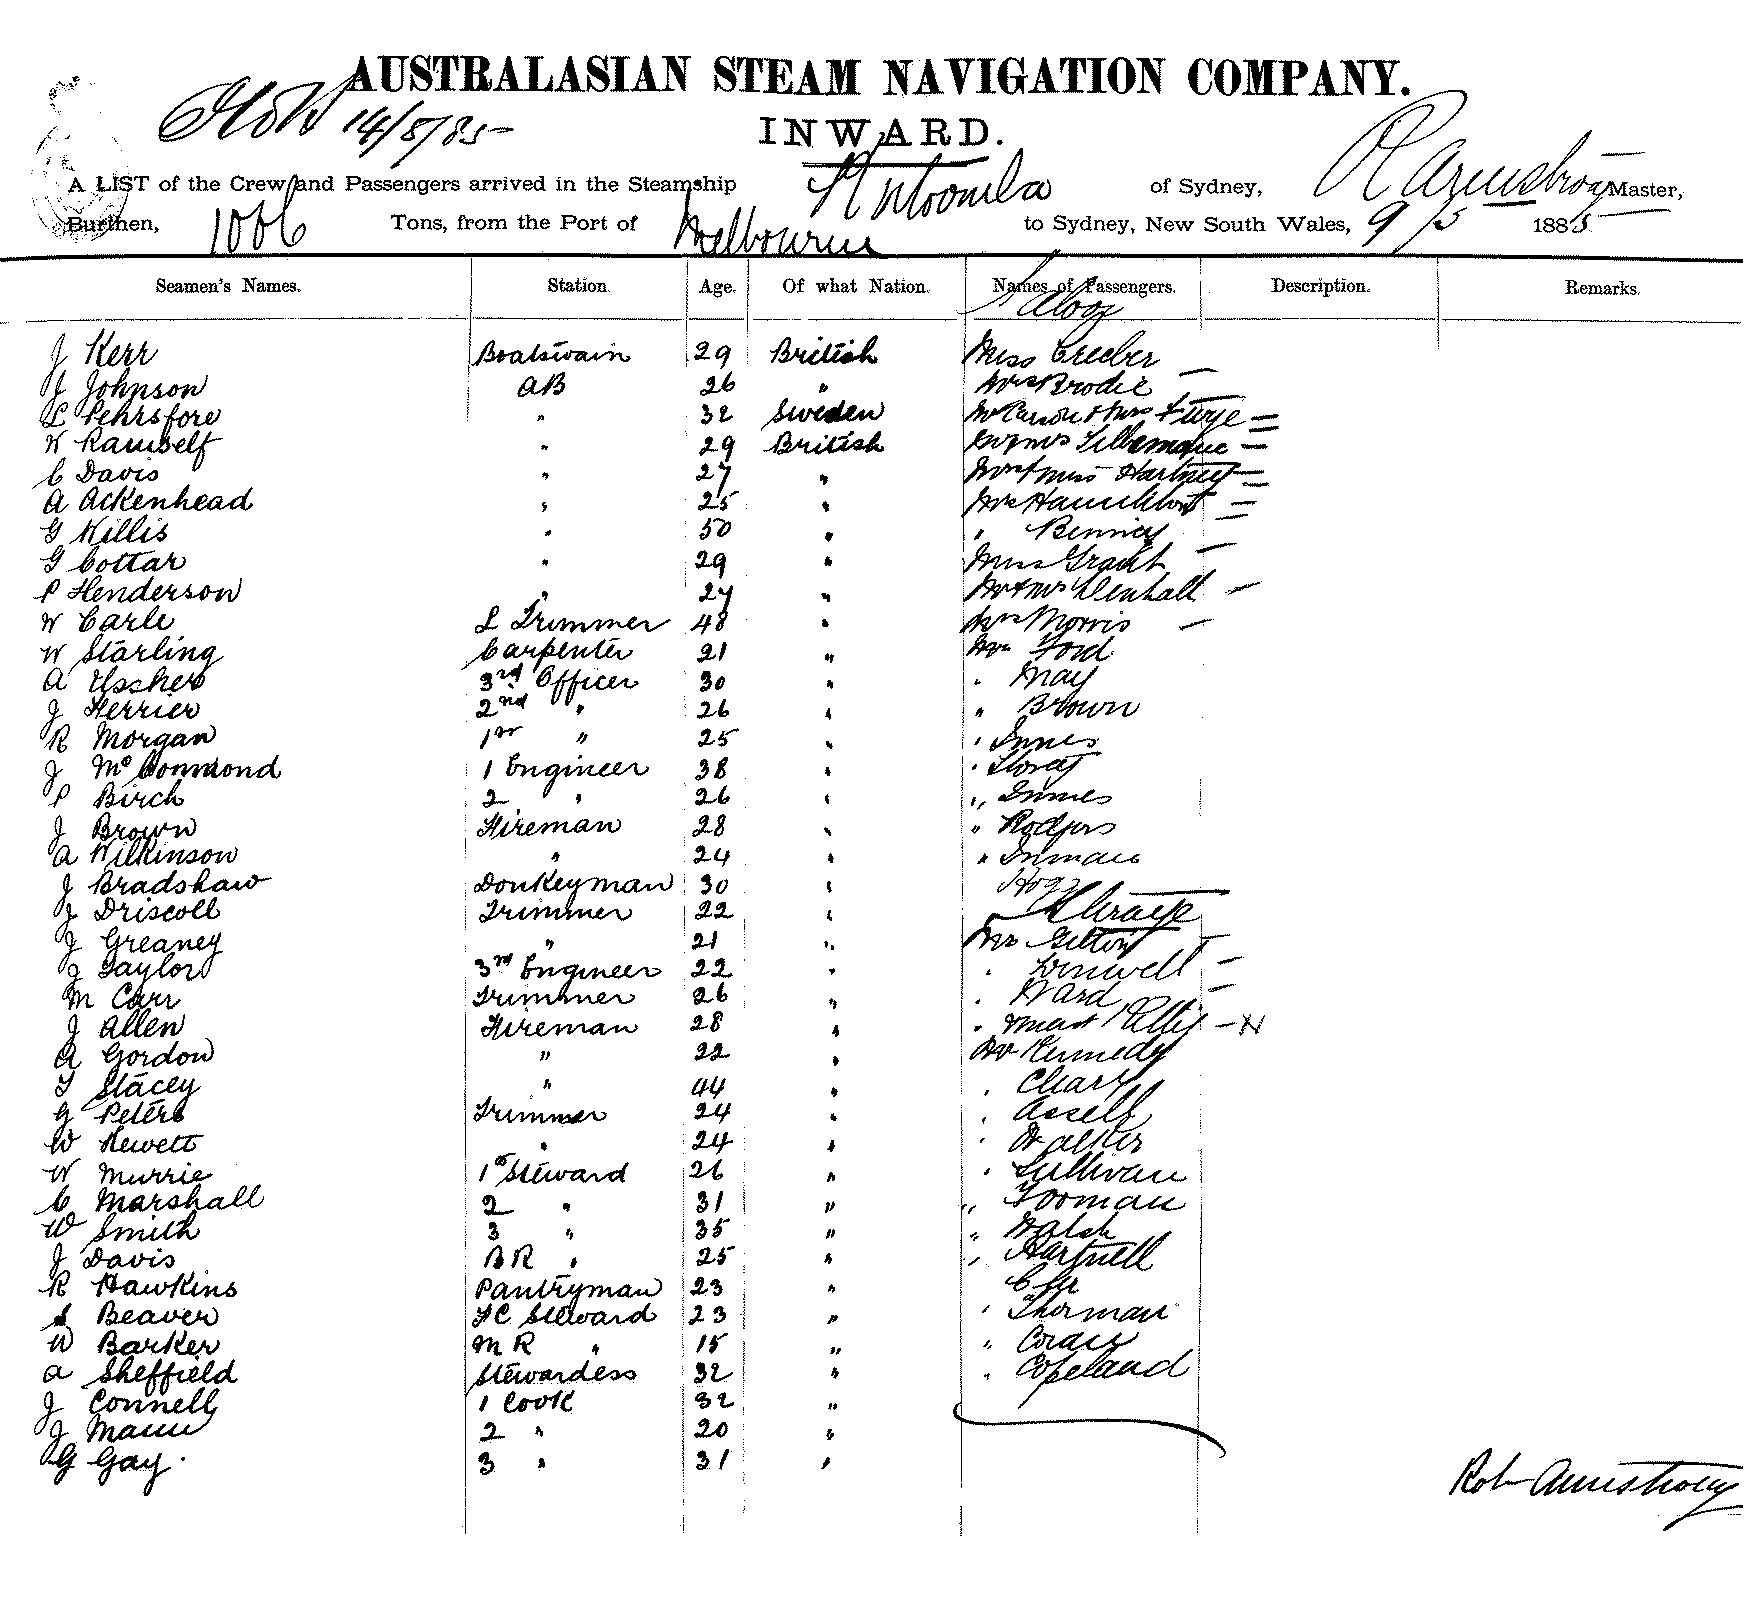 AUSTRALASIAN STEAM NAVIGATION COMPANY.
14/5/85
INWARD.
A LIST of the Crew and Passengers arrived in the Steamship of Sydney, R Armstrong Master,
Burthen, 1006 Tons, from the Port of Melbourne to Sydney, New South Wales, 9/5 1885
Seamen's Names. Station. Age. Of what Nation. Names of Passengers. Description. Remarks.
Saloon
J Kerr Boatswain 29 British Miss Creeber
J Johnson AB 26 " Mrs Brodie
32 Sweden
W 29 British
C Davis " 27 " Hartnett
A Ackenhead " 25 " Mrs
G Willis " 50 "
G Cottar " 29 " Miss Grant
P Henderson " 27 " Denhall
W Carle L Trimmer 48 " Mrs Morris
W Starling Carpenter 21 " Mr Ford
A 3rd Officer 30 " " May
J Ferrier 2nd " 26 " " Brown
R Morgan 1st " 25 " " Innes
J 1 Engineer 38 "
P Birch 2 " 26 " "
J Brown Fireman 28 " " Rodgers
A Wilkinson " 24 " " Inman
J Bradshaw Donkeyman 30 " Hogg
J Driscoll Trimmer 22 " Steerage
J Greaney " 21 " Mr
J Taylor 3rd Engineer 22 "
M Carr Trimmer 26 " " Ward
J Allen Fireman 28 " " Ellis
A Gordon " 22 " Mr Kennedy
T Stacey " 44 "
G Peters Trimmer 24 "
W Hewett " 24 " " Walker
W Murrie 1st Steward 26 " " Sullivan
C Marshall 2 " 31 "
W Smith 3 " 35 " " Walsh
J Davis BR " 25 " " Hartnell
R Hawkins Pantryman 23 "
S Beaver FC Steward 23 " " Thorman
W Barker MR " 15 "
A Sheffield Stewardess 32 " " Copeland
J Connell 1 Cook 32 "
J Mann 2 " 20 "
G Gay. 3 " 31 "
Robt Armstrong